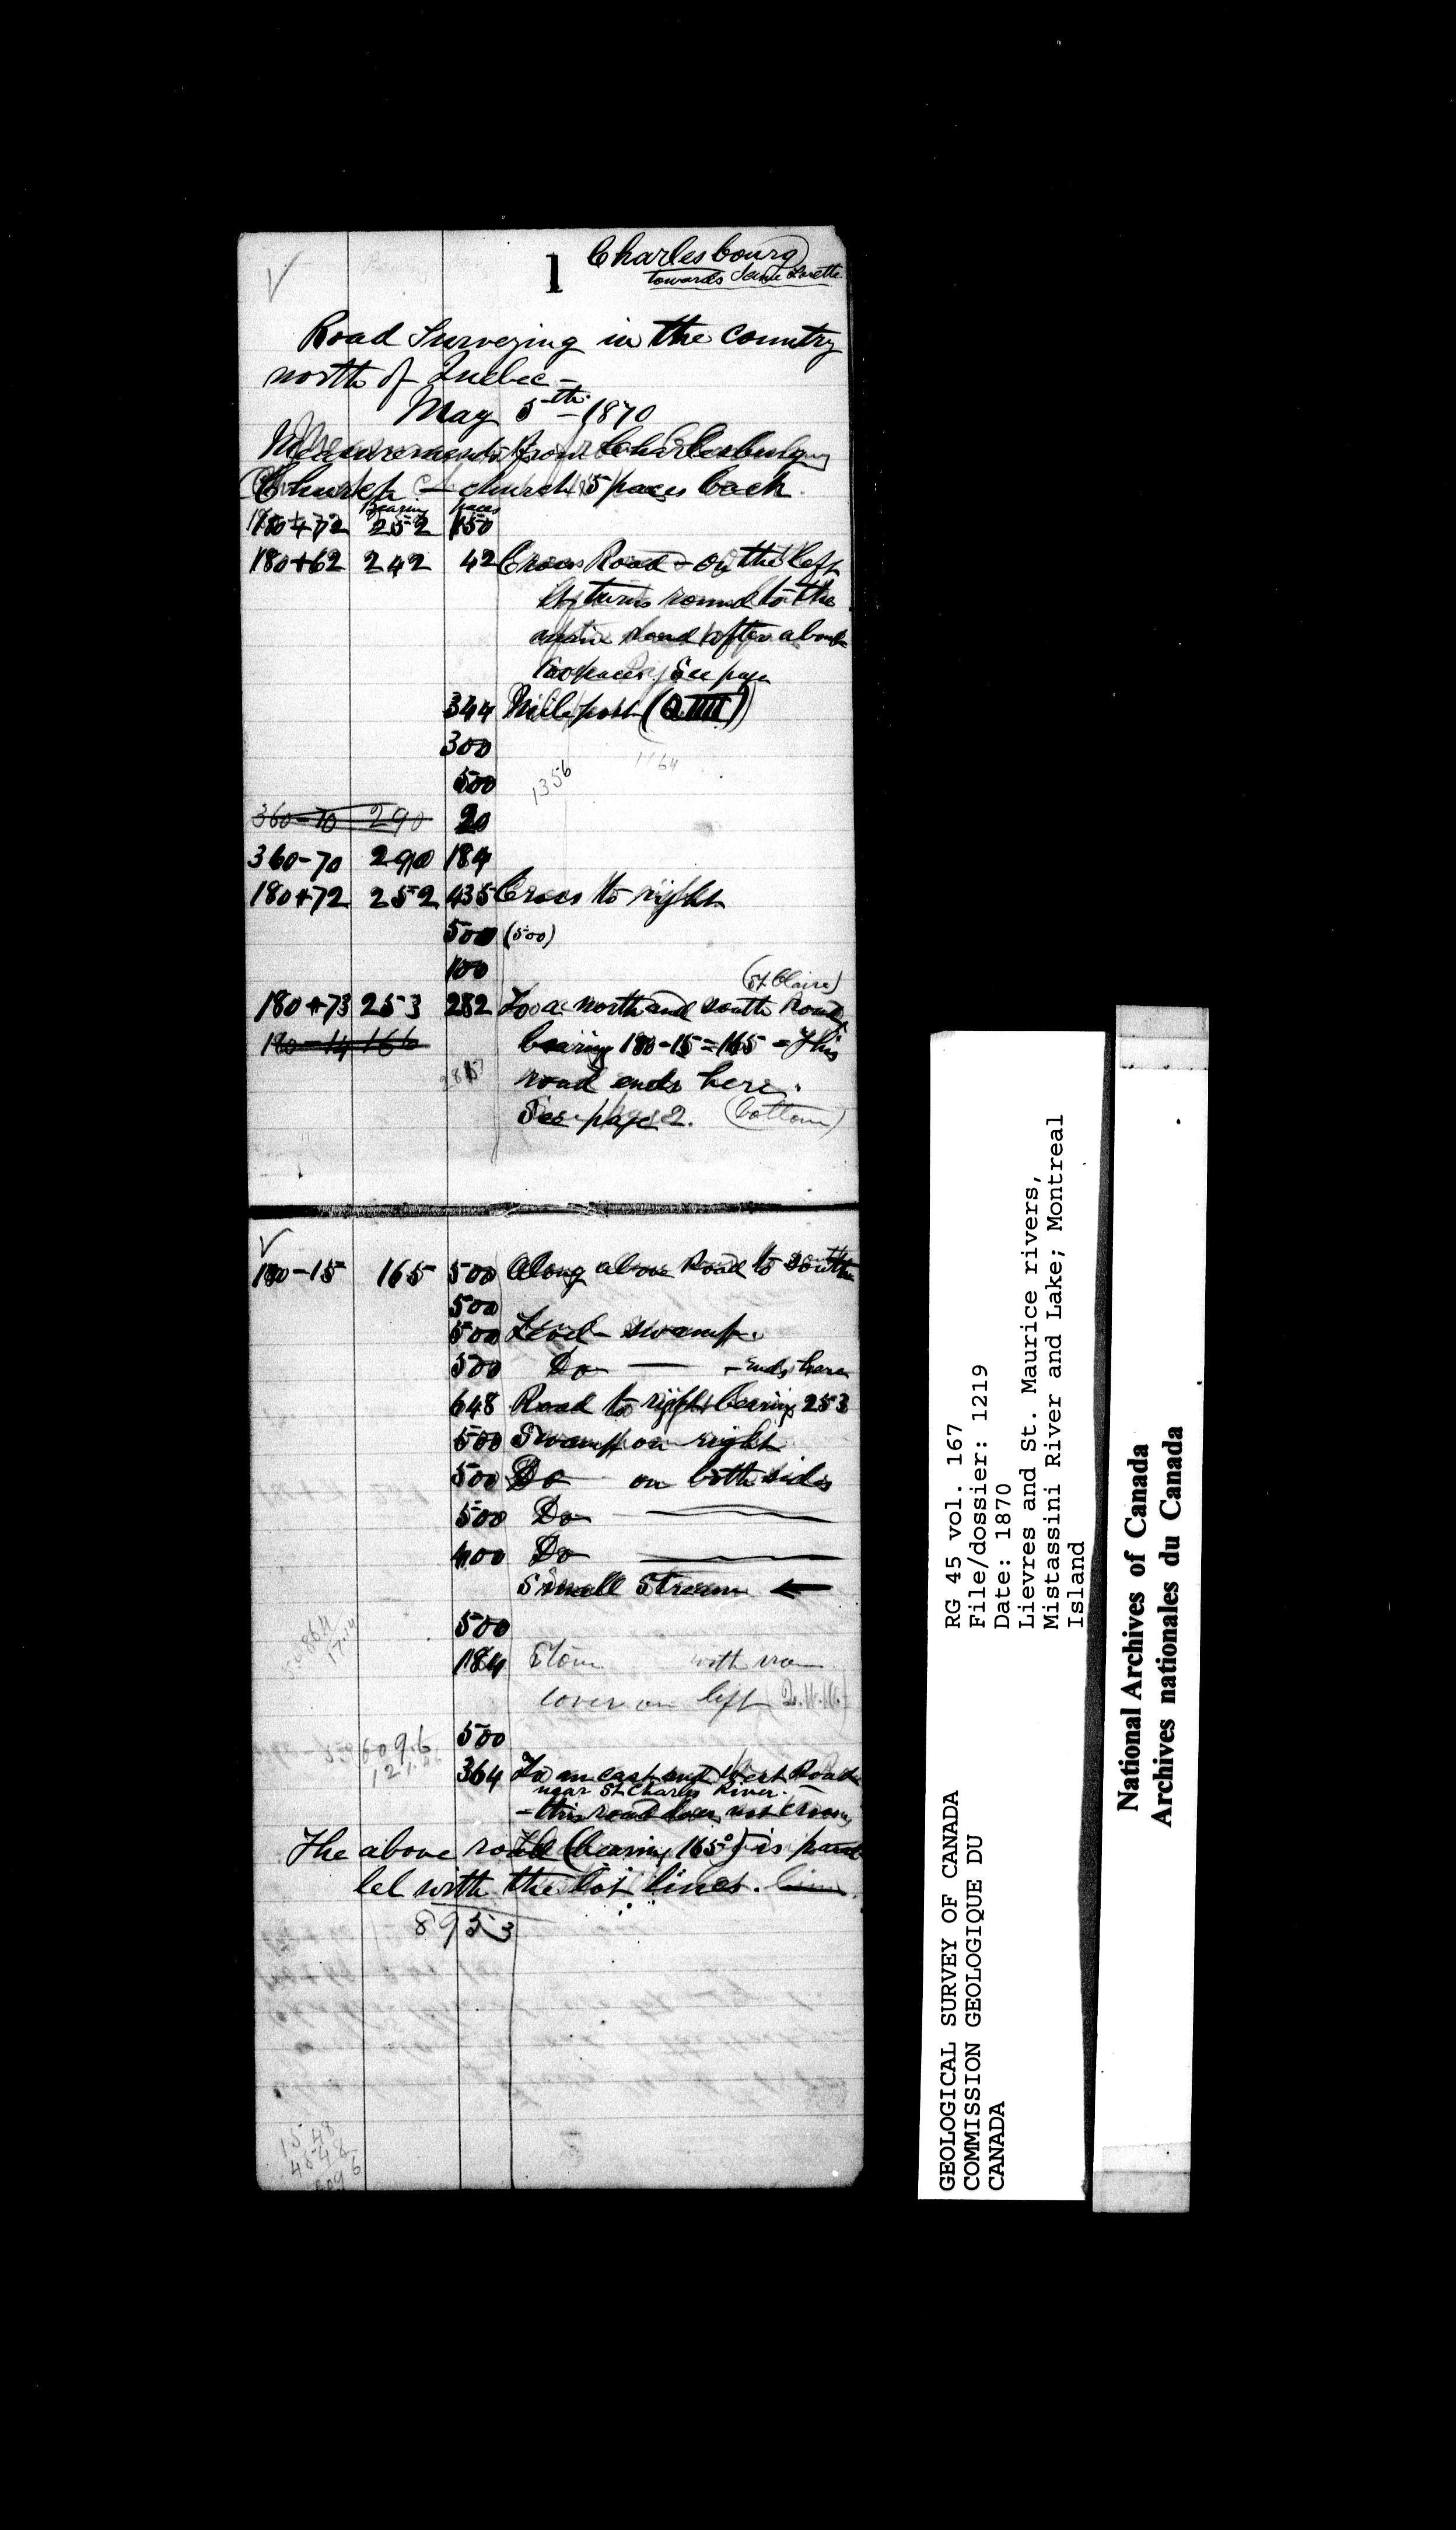 1
Charlesbourg
towards Jeune Lorette
Road Surveying in the country
north of Quebec -
May 5th - 1870
Measurements from Charlesburg
Church - church 15 paces back.
Bearing paces
180+72 252 150
180+62 242 42 Cross Road - on the left
It turns round to the
main road after about
100 paces. See page
344 Mile post (Q IIII)
300
500 1356 1164
360-70 290 20
360-70 290 184
180+72 252 435 Cross to right
500 (500)
100
(St Claire)
180+73 253 282 To a north and south Road,
180-14 166 bearing 180-15=165 - This
road ends here.
See page 2. (bottom)
180-15 165 500 Along above Road to south
500
500 Level - swamp.
500 Do - ends here
648 Road to right bearing 253
500 Swamp on right
500 Do on both sides
500 Do
400 Do
Small Stream ←
500
184 with iron
cover on left
500
609.6
364 To an east and West Road
near St Charles River.
- this road does not cross
The above road (bearing 165°) is paral
lel with the lot lines.
8953
1548
4548
6096
RG 45 vol. 167
File/dossier: 1219
Date: 1870
Lievres and St. Maurice rivers,
Mistassini River and Lake; Montreal
Island
GEOLOGICAL SURVEY OF CANADA
COMMISSION GEOLOGIQUE DU
CANADA
National Archives of Canada
Archives nationales du Canada